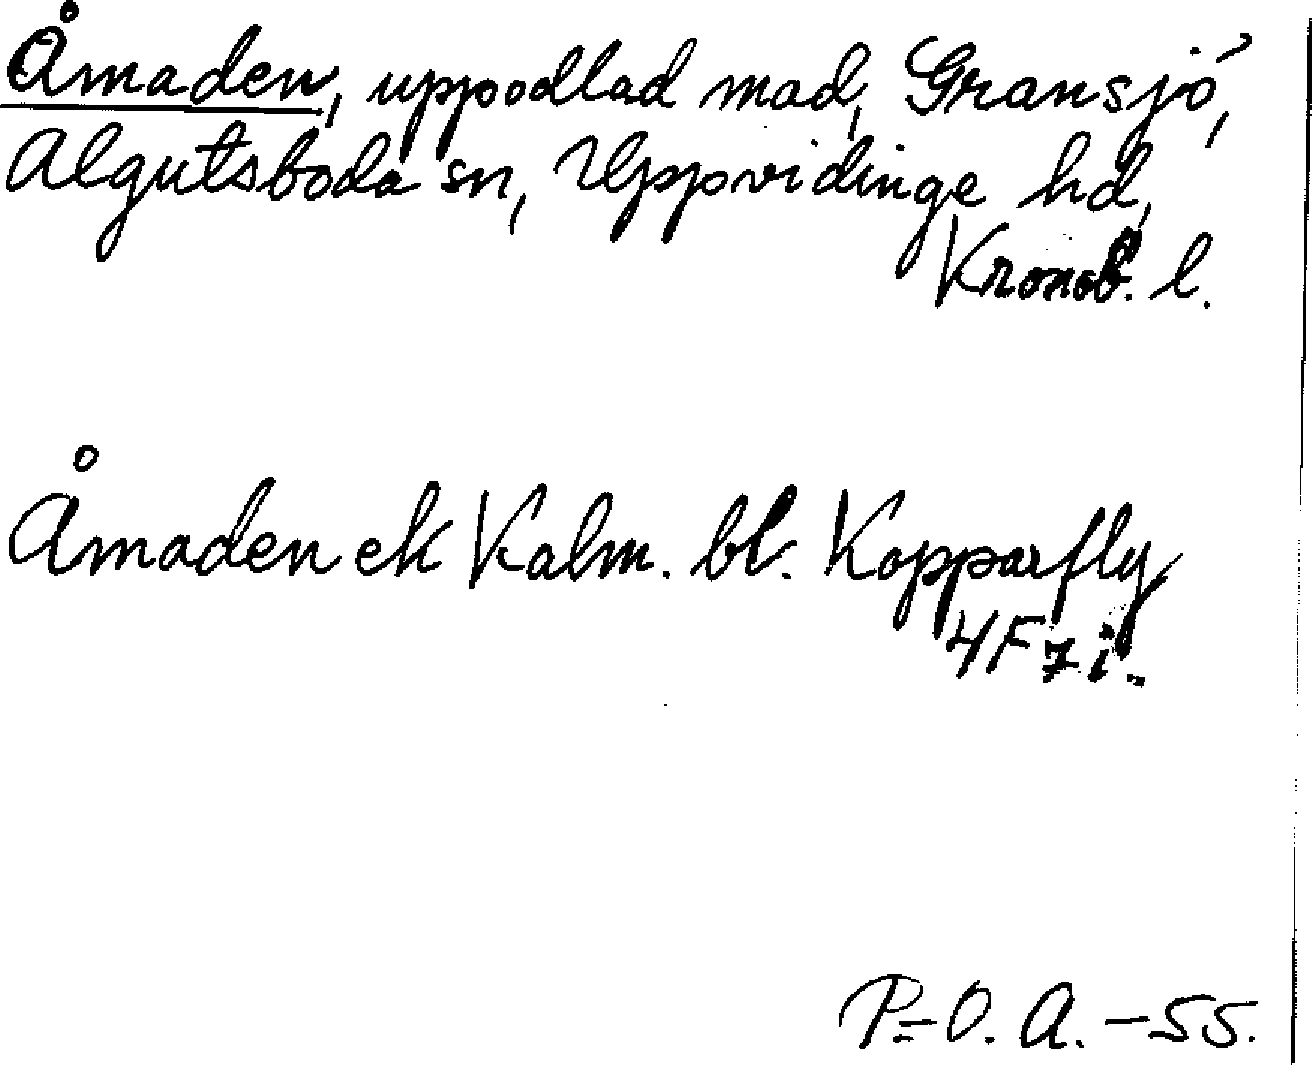 Åmaden, uppodlad mad, Gransjö,
Algutsboda sn, Uppvidinge hd,
Kronob. l.
Åmaden ek Kalm. bl. Kopparfly
4F7i.
P=O. A. -55.